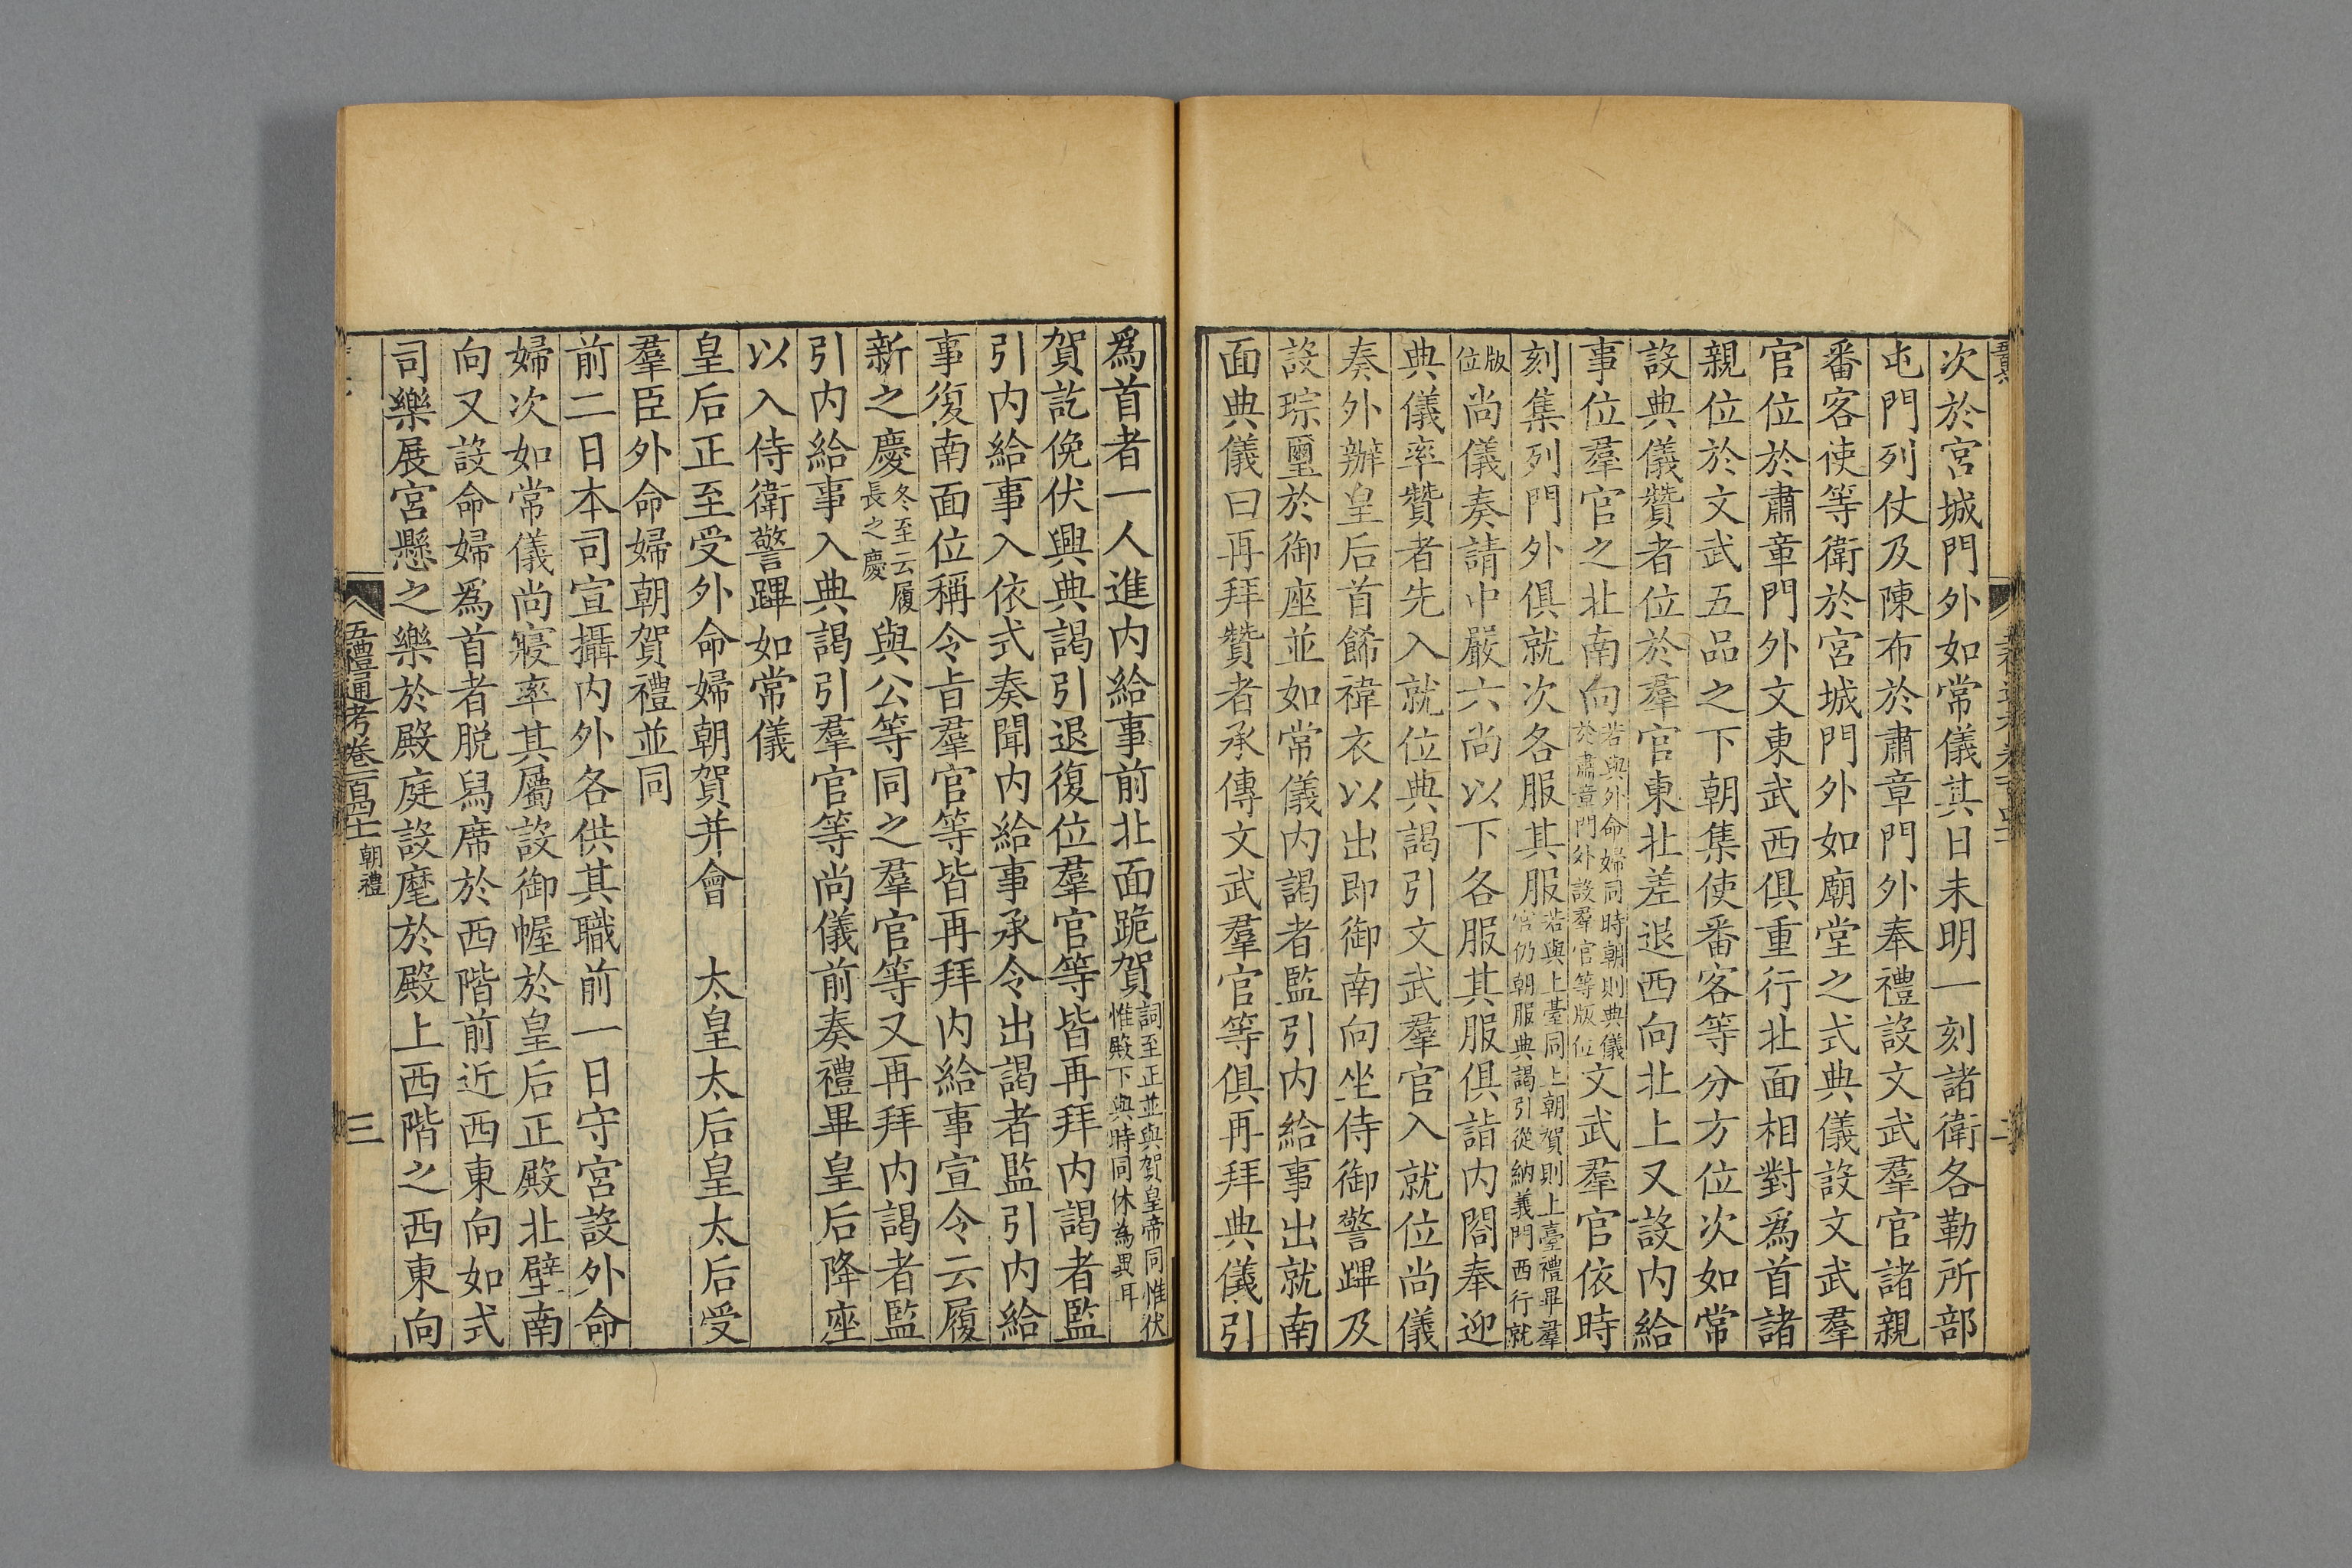 次於宮城門外如常儀其日未明一刻諸衛各勒所部
屯門列仗及陳布於肅章門外奉禮設文武羣官諸親
番客使等衛於宮城門外如廟堂之式典儀設文武羣
官位於肅章門外文東武西俱重行北面相對爲首諸
親位於文武五品之下朝集使番客等分方位次如常
設典儀贊者位於羣官東北差退西向北上又設內給
事位羣官之北南向若與外命婦同時朝則典儀於肅章門外設羣官等版位文武羣官依時
刻集列門外俱就次各服其服若與上臺同上朝賀則上臺禮畢羣官仍朝服典謁引從納義門西行就
版位尚儀奏請中嚴六尚以下各服其服俱詣內閤奉迎
典儀率贊者先入就位典謁引文武羣官入就位尚儀
奏外辦皇后首餙褘衣以出即御南向坐侍御警蹕及
設琮璽於御座並如常儀內謁者監引內給事出就南
面典儀曰再拜贊者承傳文武羣官等俱再拜典儀引
爲首者一人進內給事前北面跪賀詞至正並與賀皇帝同惟伏惟殿下與時同休為異耳
賀訖俛伏興典謁引退復位羣官等皆再拜內謁者監
引內給事入依式奏聞內給事承令出謁者監引內給
事復南面位稱令旨羣官等皆再拜內給事宣令云履
新之慶冬至云履長之慶與公等同之羣官等又再拜內謁者監
引內給事入典謁引羣官等尚儀前奏禮畢皇后降座
以入侍衛警蹕如常儀
皇后正至受外命婦朝賀并會　太皇太后皇太后受
羣臣外命婦朝賀禮並同
前二日本司宣攝內外各供其職前一日守宮設外命
婦次如常儀尚寢率其屬設御幄於皇后正殿北壁南
向又設命婦爲首者脫舄席於西階前近西東向如式
司樂展宮懸之樂於殿庭設麾於殿上西階之西東向
五禮通考卷一百四十一朝禮
三